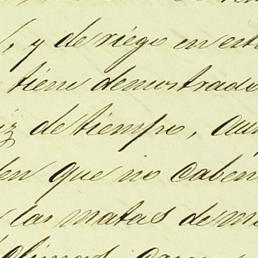 , y de riego en est
tiene demostrado
de tiempo, aun
en que no caben
las matas de m